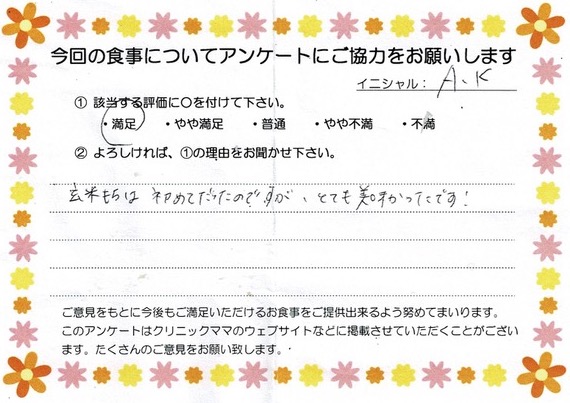 今回の食事についてアンケートにご協力をお願いします
イニシャル： A.K
① 該当する評価に〇を付けて下さい。
・満足 ・やや満足 ・普通 ・やや不満 ・不満
② よろしければ、①の理由をお聞かせ下さい。
玄米もちは 初めてだったのですが、とても美味かったです!
ご意見をもとに今後もご満足いただけるお食事をご提供出来るよう努めてまいります。
このアンケートはクリニックママのウェブサイトなどに掲載させていただくことがござい
ます。たくさんのご意見をお願い致します。